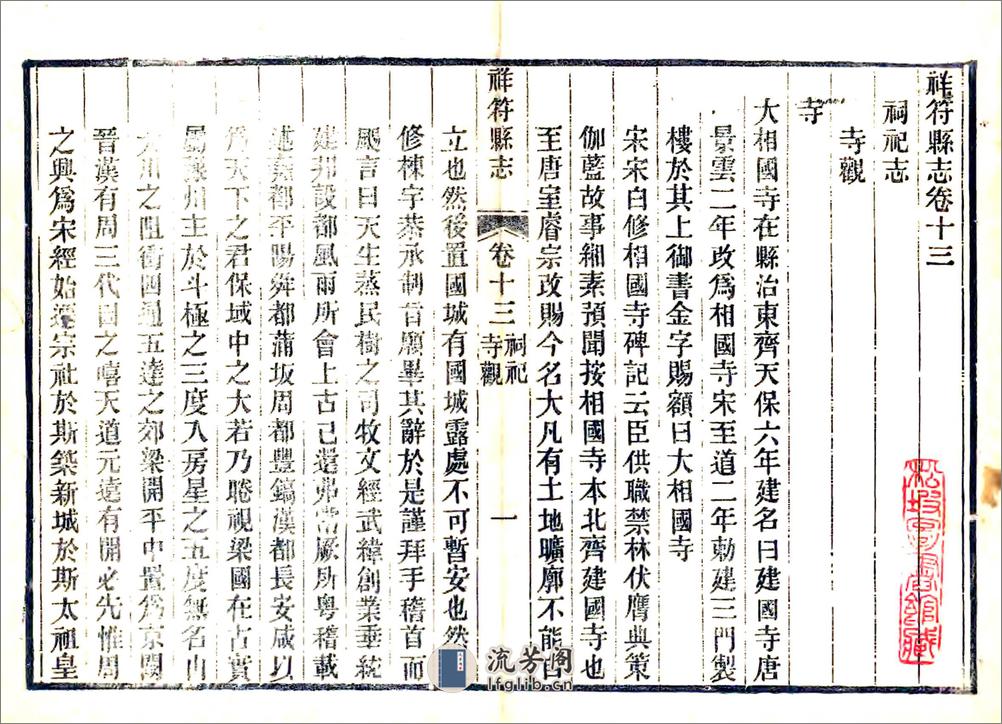 祥符縣志卷十三
祠祀志
寺觀
寺
大相國寺在縣治東齊天保六年建名曰建國寺唐
景雲二年改爲相國寺宋至道二年勅建三門製
樓於其上御書金字賜額曰大相國寺
宋宋白修相國寺碑記云臣供職禁林伏膺典策
伽藍故事緗素預聞按相國寺本北齊建國寺也
至唐室睿宗改賜今名大凡有土地曠廓不能自
祥符縣志
卷十三
祠祀
寺觀
一
立也然後置國城有國城露處不可暫安也然
修棟宇恭承制旨願畢其辭於是謹拜手稽首而
颺言曰天生蒸民樹之司牧文經武緯創業垂統
建邦設都風雨所會上古已還弗常厥所粵稽載
述堯都平陽舜都蒲坂周都豐鎬漢都長安咸以
爲天下之君保域中之大若乃睠視梁國在古實
屬豫州主於斗極之三度入房星之五度無名山
大川之阻衝四通五達之郊梁開平中置爲京闕
晉漢有周三代因之噫天道元遠有開必先惟周
之興爲宋經始遷宗社於斯築新城於斯太祖皇
松坡圖書館藏
流芳阁
lfglib.cn